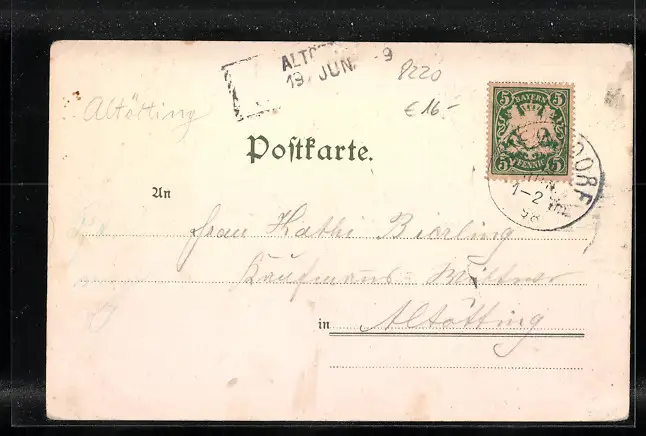 19 JUN. 9
8220
€ 16.-
Altötting
5 BAYERN 5
5 PFENNIG 5
DORF
1-2
98
Postkarte.
An
Frau Kathi Bierling
Kaufmanns-
in Altötting